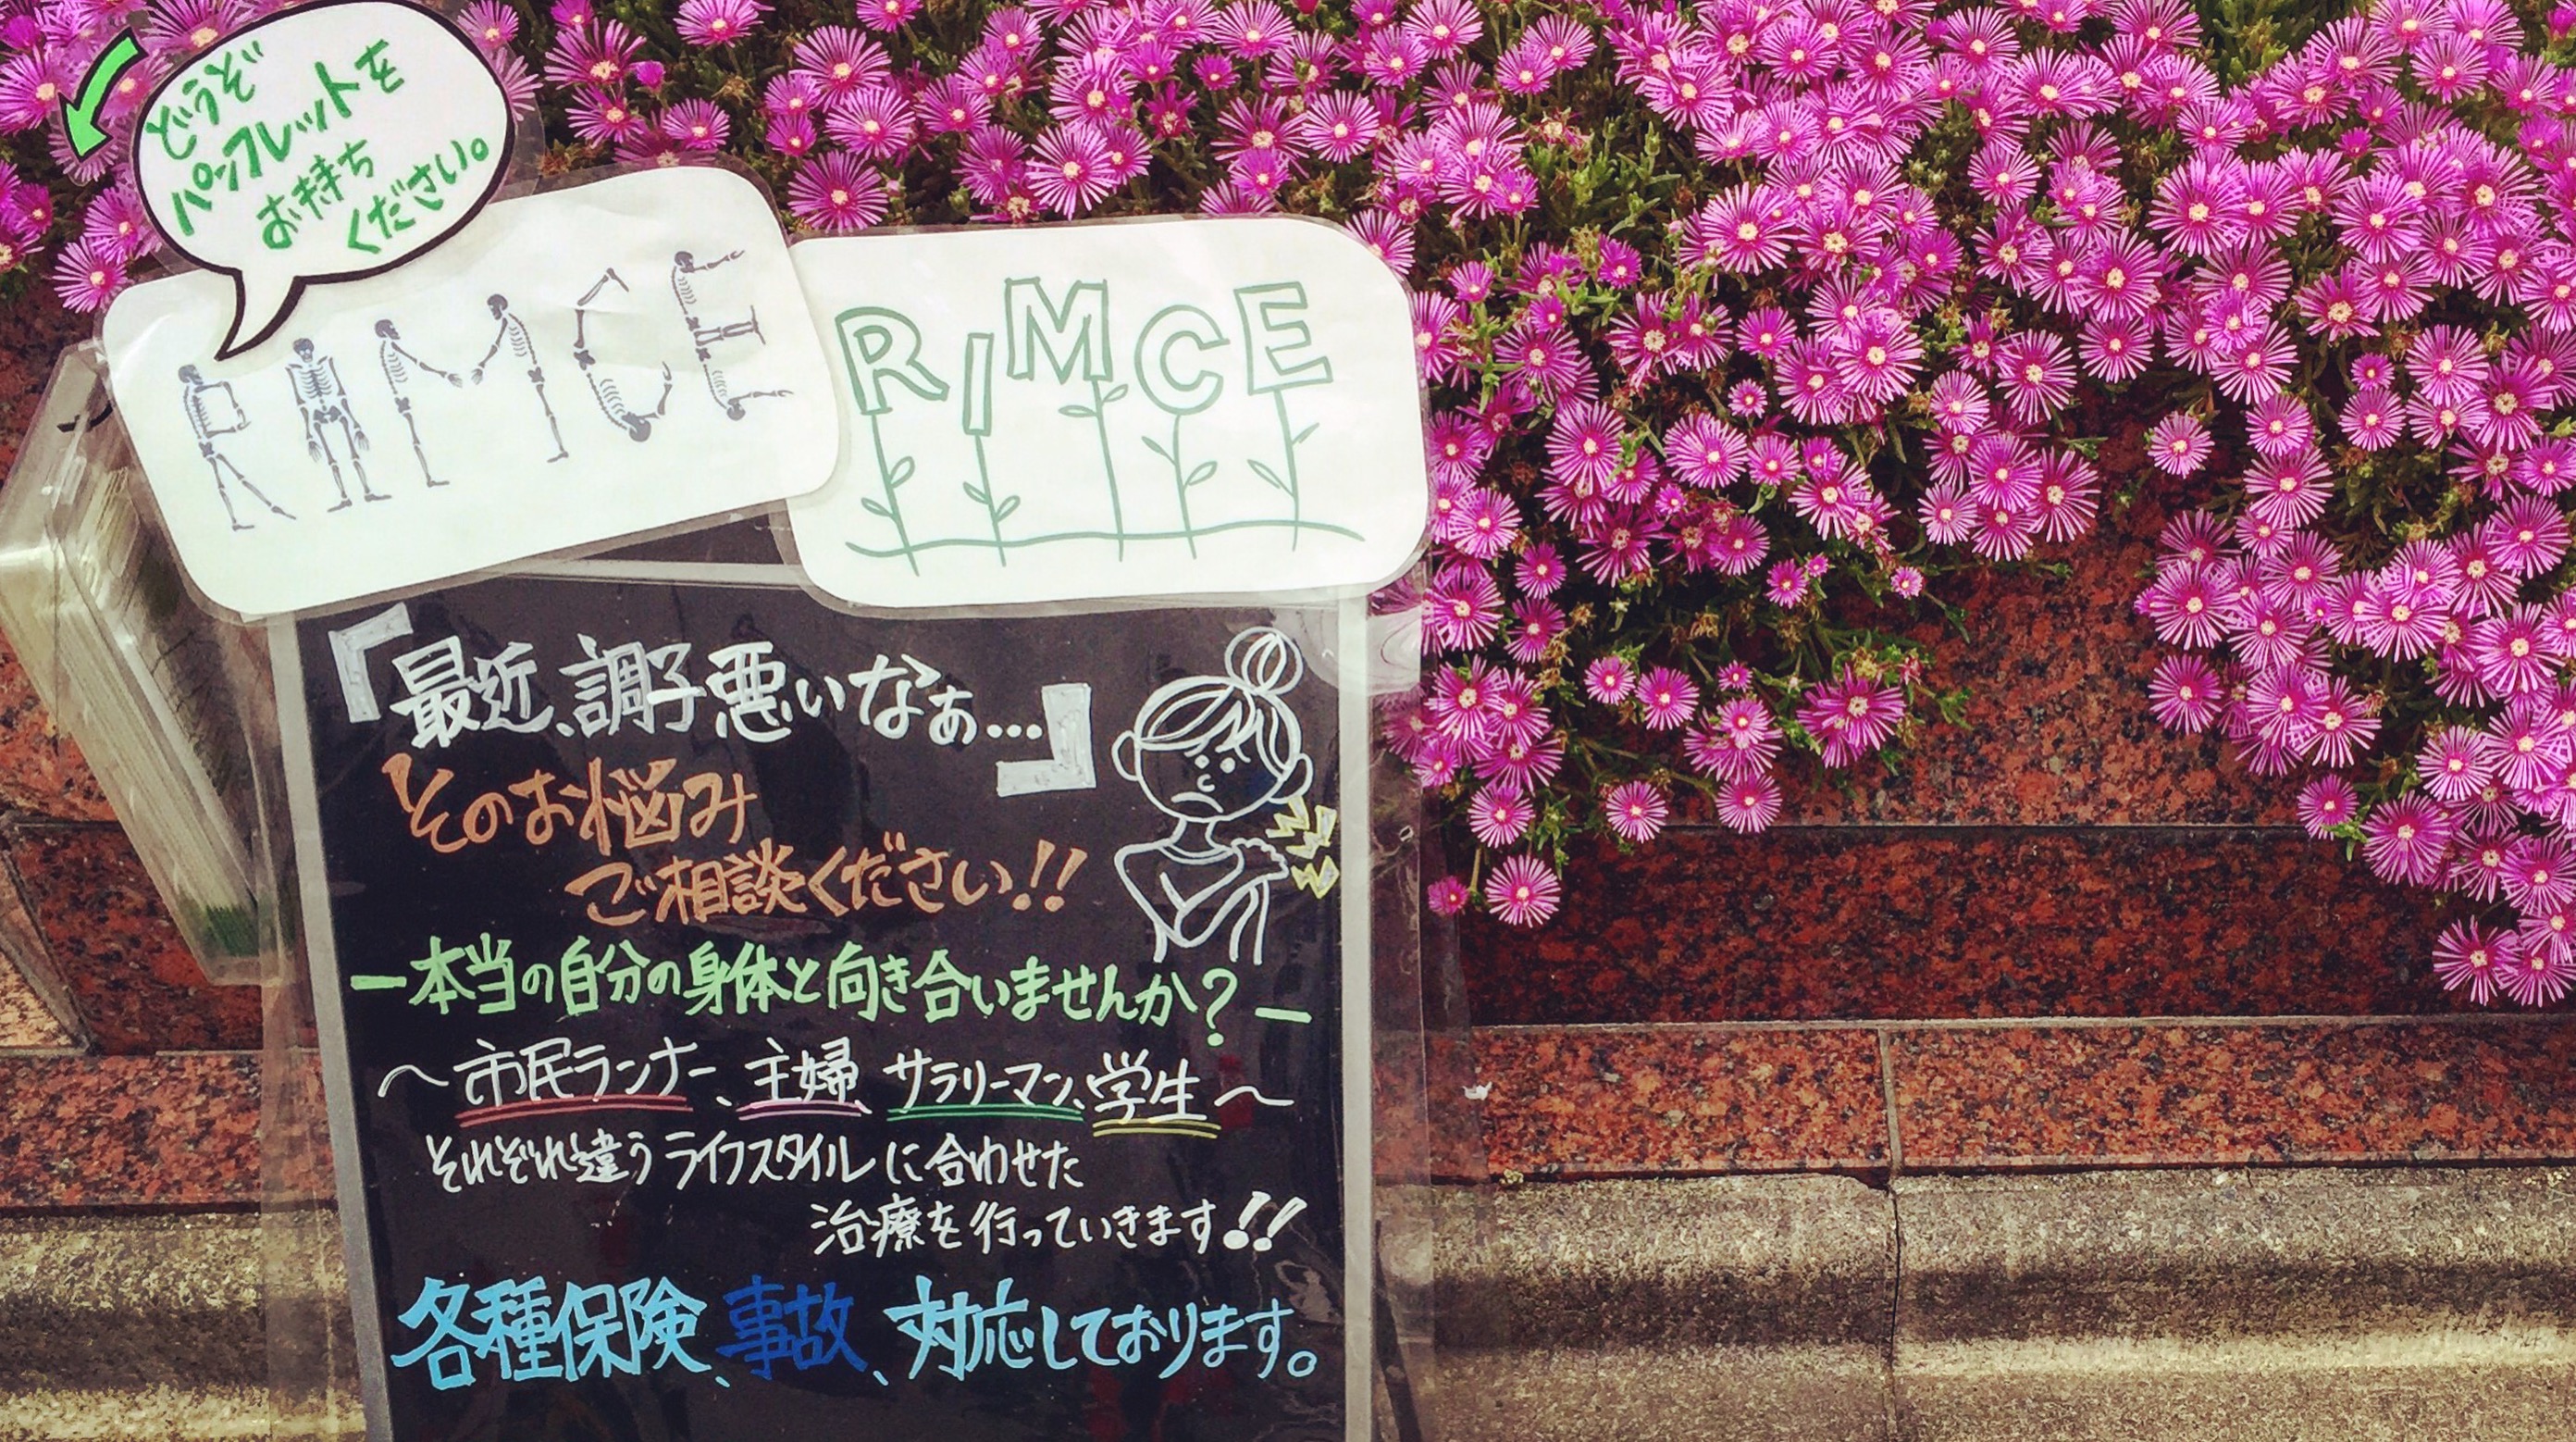 どうぞ
パンフレットを
お持ち
ください。
RIMCE
RIMCE
「最近、調子悪いなぁ…」
そのお悩み
ご相談ください!!
ー本当の自分の身体と向き合いませんか?ー
〜市民ランナー、主婦、サラリーマン、学生〜
それぞれ違うライフスタイルに合わせた
治療を行っていきます!!
各種保険、事故、対応しております。